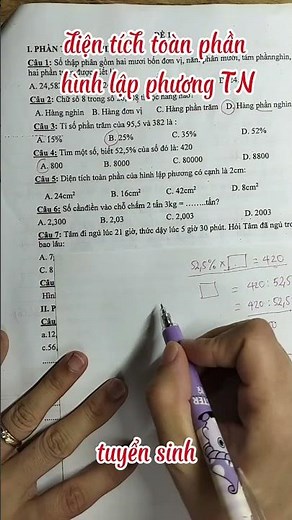 diện tích toàn phần
hình lập phương TN
I. PHẦN
Câu 1: Số thập phân gồm hai mươi bốn đơn vị,
A. 24,58
Câu 2: Chữ số 8 trong số
A. Hàng nghìn B. Hàng đơn vị C. Hàng phần trăm D. Hàng phần nghìn
Câu 3: Tỉ số phần trăm của 95,5 và 382 là :
A. 15% B. 25% C. 35% D. 52%
Câu 4: Tìm một số, biết 52,5% của số đó là: 420
A. 800 B. 8000 C. 80000 D. 8800
Câu 5: Diện tích toàn phần của hình lập phương có cạnh là 2cm:
A. 24cm² B. 16cm² C. 42cm² D. 8cm²
Câu 6: Số cần điền vào chỗ chấm 2 tấn 3kg = ……..tấn?
A. 2,300 B. 2,03 C. 2,003 D. 2003
Câu 7: Tâm đi ngủ lúc 21 giờ, thức dậy lúc 5 giờ 30 phút. Hỏi Tâm đã ngủ
bao lâu:
A. 7
52,5% x = 420
C. 8
Câu
= 420 : 52,5
Hìn
II. P
= 420 : 52,5
Câu
a.12
c.56
tuyển sinh